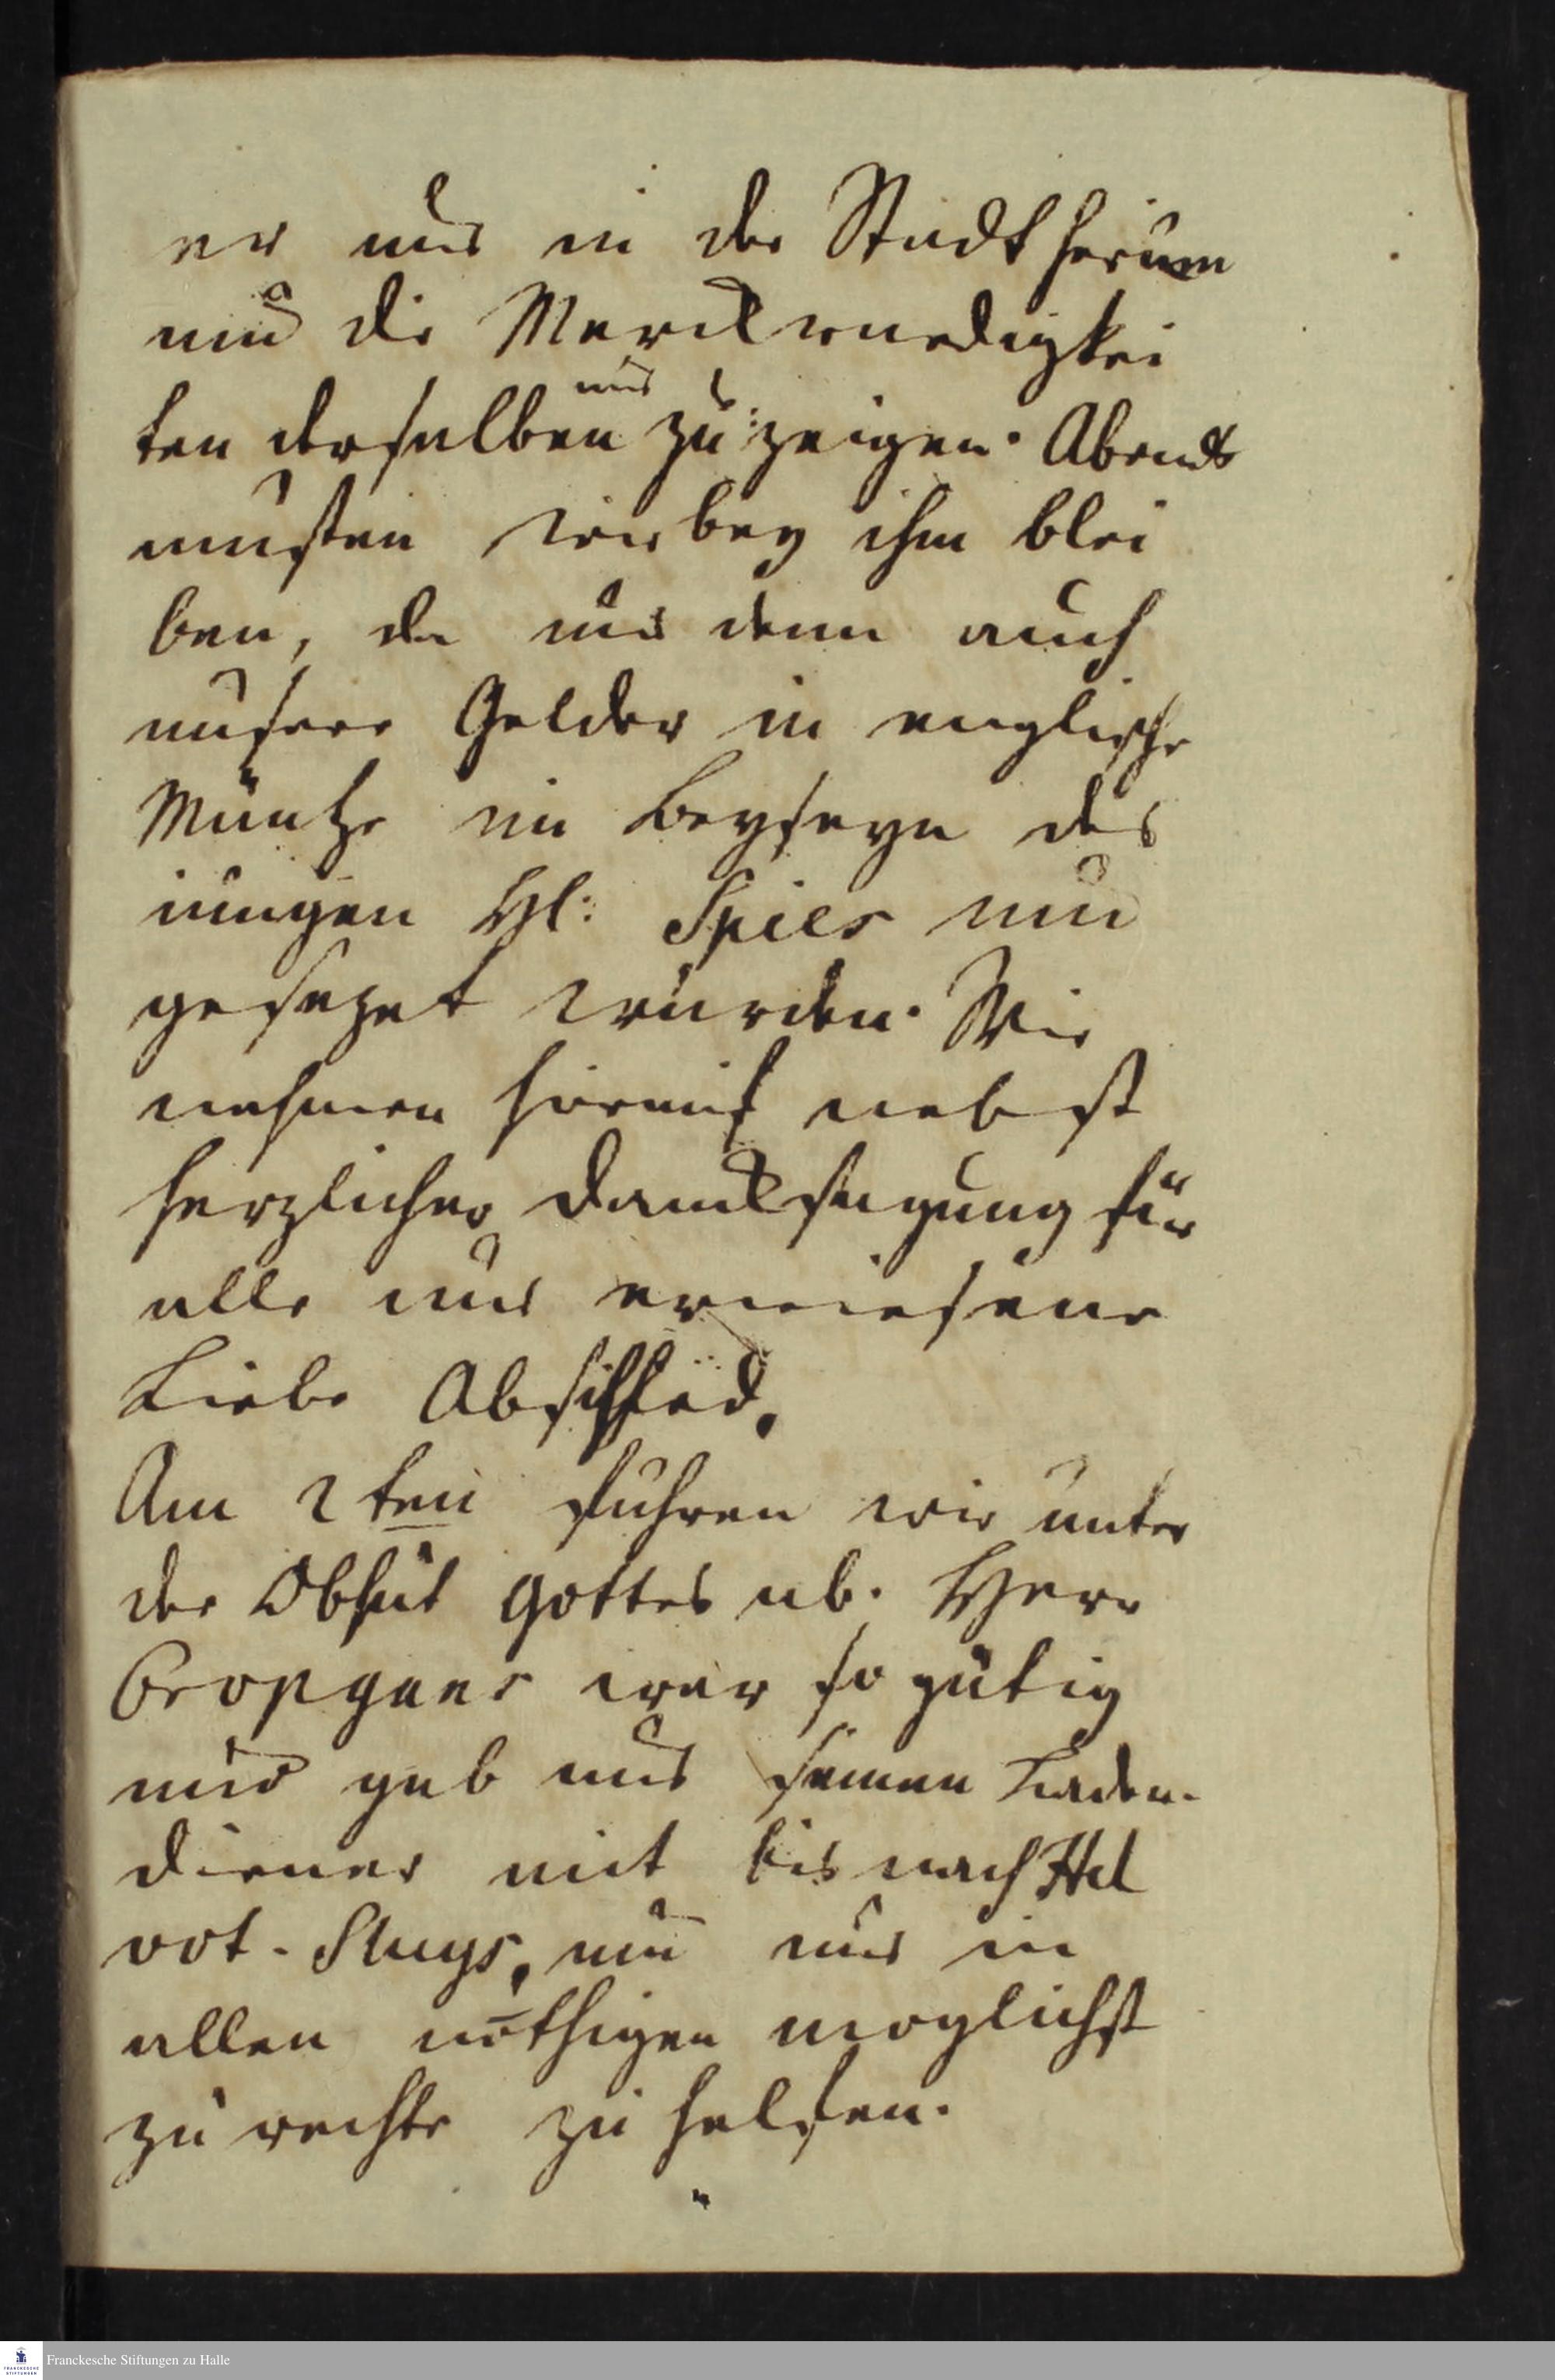 er uns in der Stadt herum
um die Merckwurdigkei
ten derselben uns zu zeigen. Abends
musten wir bey ihm blei
ben, da uns denn auch
unsere Gelder in englische
Müntze im Beyseyn des
iungen H: Spies um
gesezet wurden. Wir
nahmen hierauf nebst
herzlicher Dancksagung für
alle uns erwiesene
Liebe Abschied.
Am 2ten fuhren wir unter
der Obhut Gottes ab. Herr
war so gütig
und gab uns seinen Laden-
diener mit bis nach Hel
vot-Sluys, um uns in
allen nöthigen moglichst
zu rechte zu helfen.
Franckesche Stiftungen zu Halle